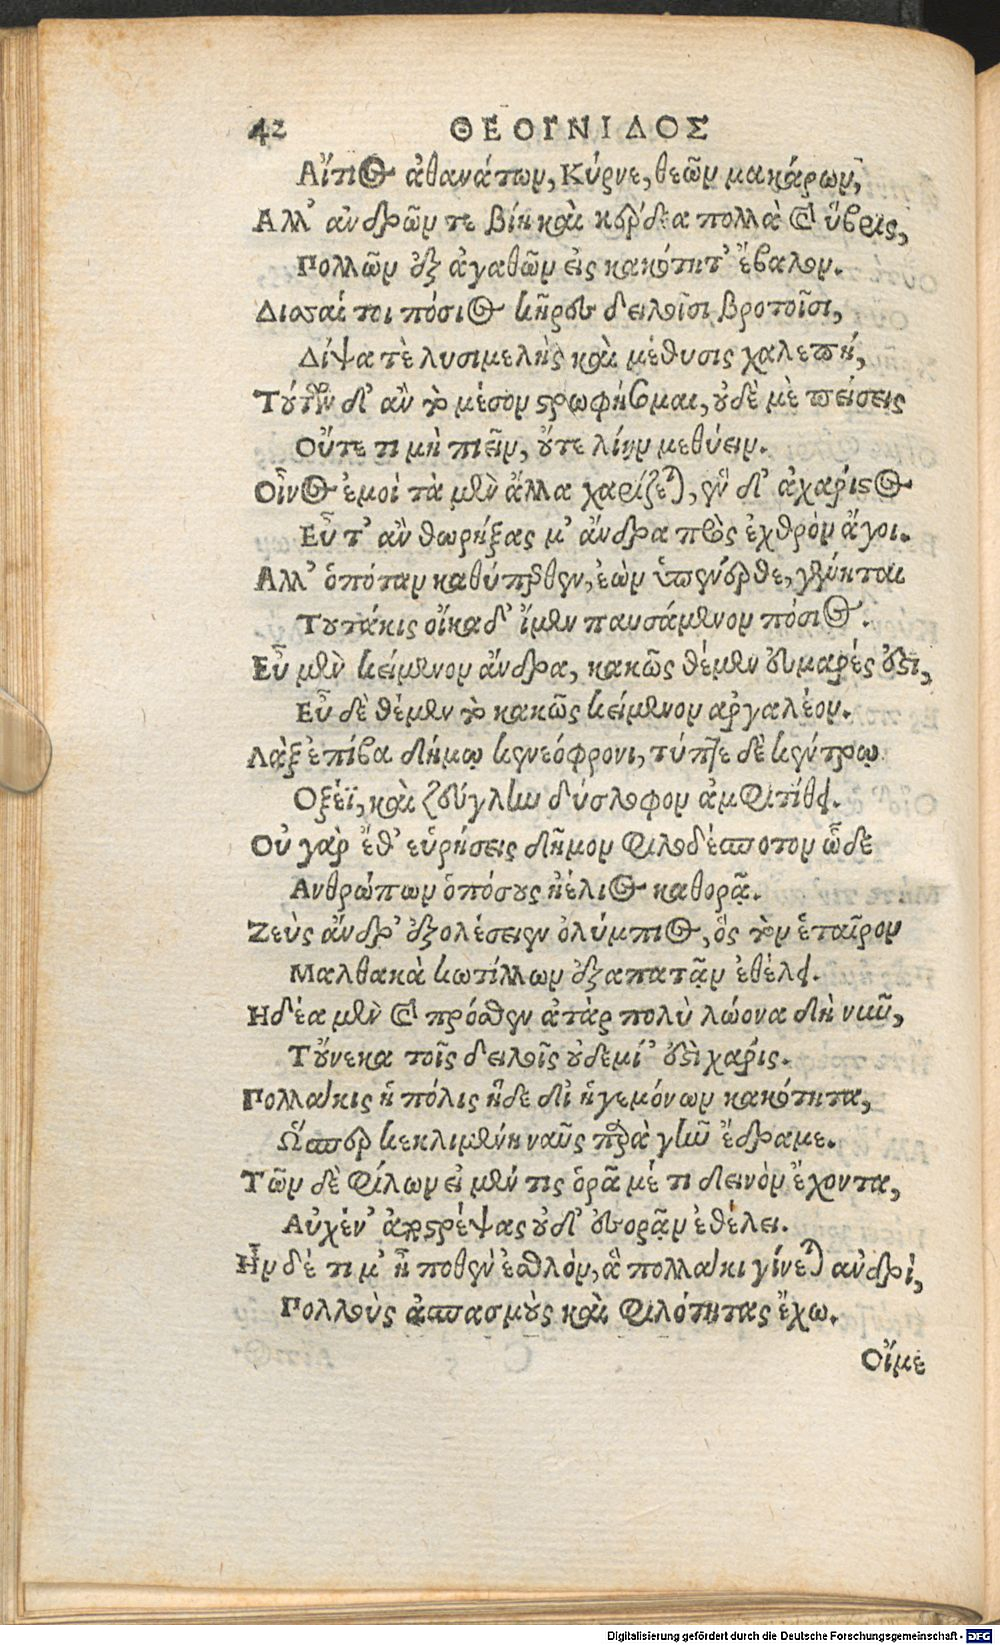 42 ΘΕΟΓΝΙΔΟΣ
Αἴτιος ἀθανάτων, Κύρνε, θεῶν μακάρων,
Αλλ' ἀνδρῶν τε βίη καὶ κέρδεα πολλὰ καὶ ὕβρις,
Πολλῶν ἐξ ἀγαθῶν εἰς κακότητ' ἔβαλον.
Δισσαί τοι πόσιος κῆρες δειλοῖσι βροτοῖσι,
Δίψα τὲ λυσιμελὴς καὶ μέθυσις χαλεπή,
Τούτων δ' ἂν τὸ μέσον στρωφήσομαι, οὐδὲ μὲ πείσεις
Οὔτε τι μὴ πιεῖν, οὔτε λίην μεθύειν.
Οἶνος ἐμοὶ τὰ μὲν ἄλλα χαρίζεται, ἓν δ' ἀχάριστος
Εὖτ' ἂν θωρήξας μ' ἄνδρα πρὸς ἐχθρὸν ἄγοι.
Αλλ' ὁπόταν καθύπερθεν, ἐὼν ὑπένερθε, γένηται
Τουτάκις οἴκαδ' ἴμεν παυσάμενον πόσιος.
Εὖ μὲν κείμενον ἄνδρα, κακῶς θέμεν εὐμαρές ἐστι,
Εὖ δὲ θέμεν τὸ κακῶς κείμενον ἀργαλέον.
Λὰξ ἐπίβα δήμῳ κενεόφρονι, τύπτε δὲ κέντρῳ
Οξέϊ, καὶ ζεύγλην δύσλοφον ἀμφιτίθει.
Οὐ γὰρ ἔθ' εὑρήσεις δῆμον φιλοδέσποτον ὧδε
Ανθρώπων ὁπόσους ἠέλιος καθορᾷ.
Ζεὺς ἄνδρ' ἐξολέσειεν ὀλύμπιος, ὃς τὸν ἑταῖρον
Μαλθακὰ κωτίλλων ἐξαπατᾷν ἐθέλει.
Ηδέα μὲν καὶ πρόσθεν ἀτὰρ πολὺ λώονα δὴ νῦν,
Τοὔνεκα τοῖς δειλοῖς οὐδεμί' ἐστὶ χάρις.
Πολλάκις ἡ πόλις ἥδε δι' ἡγεμόνων κακότητα,
Ὥσπερ κεκλιμένη ναῦς παρὰ γῆν ἔδραμε.
Τῶν δὲ φίλων εἰ μέν τις ὁρᾶ μέ τι δεινὸν ἔχοντα,
Αὐχέν' ἀποστρέψας οὐδ' ἐσορᾷν ἐθέλει.
Ἢν δέ τι μ' ἦ ποθὲν ἐσθλὸν, ἃ πολλάκι γίνεται ἀνδρὶ,
Πολλοὺς ἀσπασμοὺς καὶ φιλότητας ἔχω.
Οἴμε